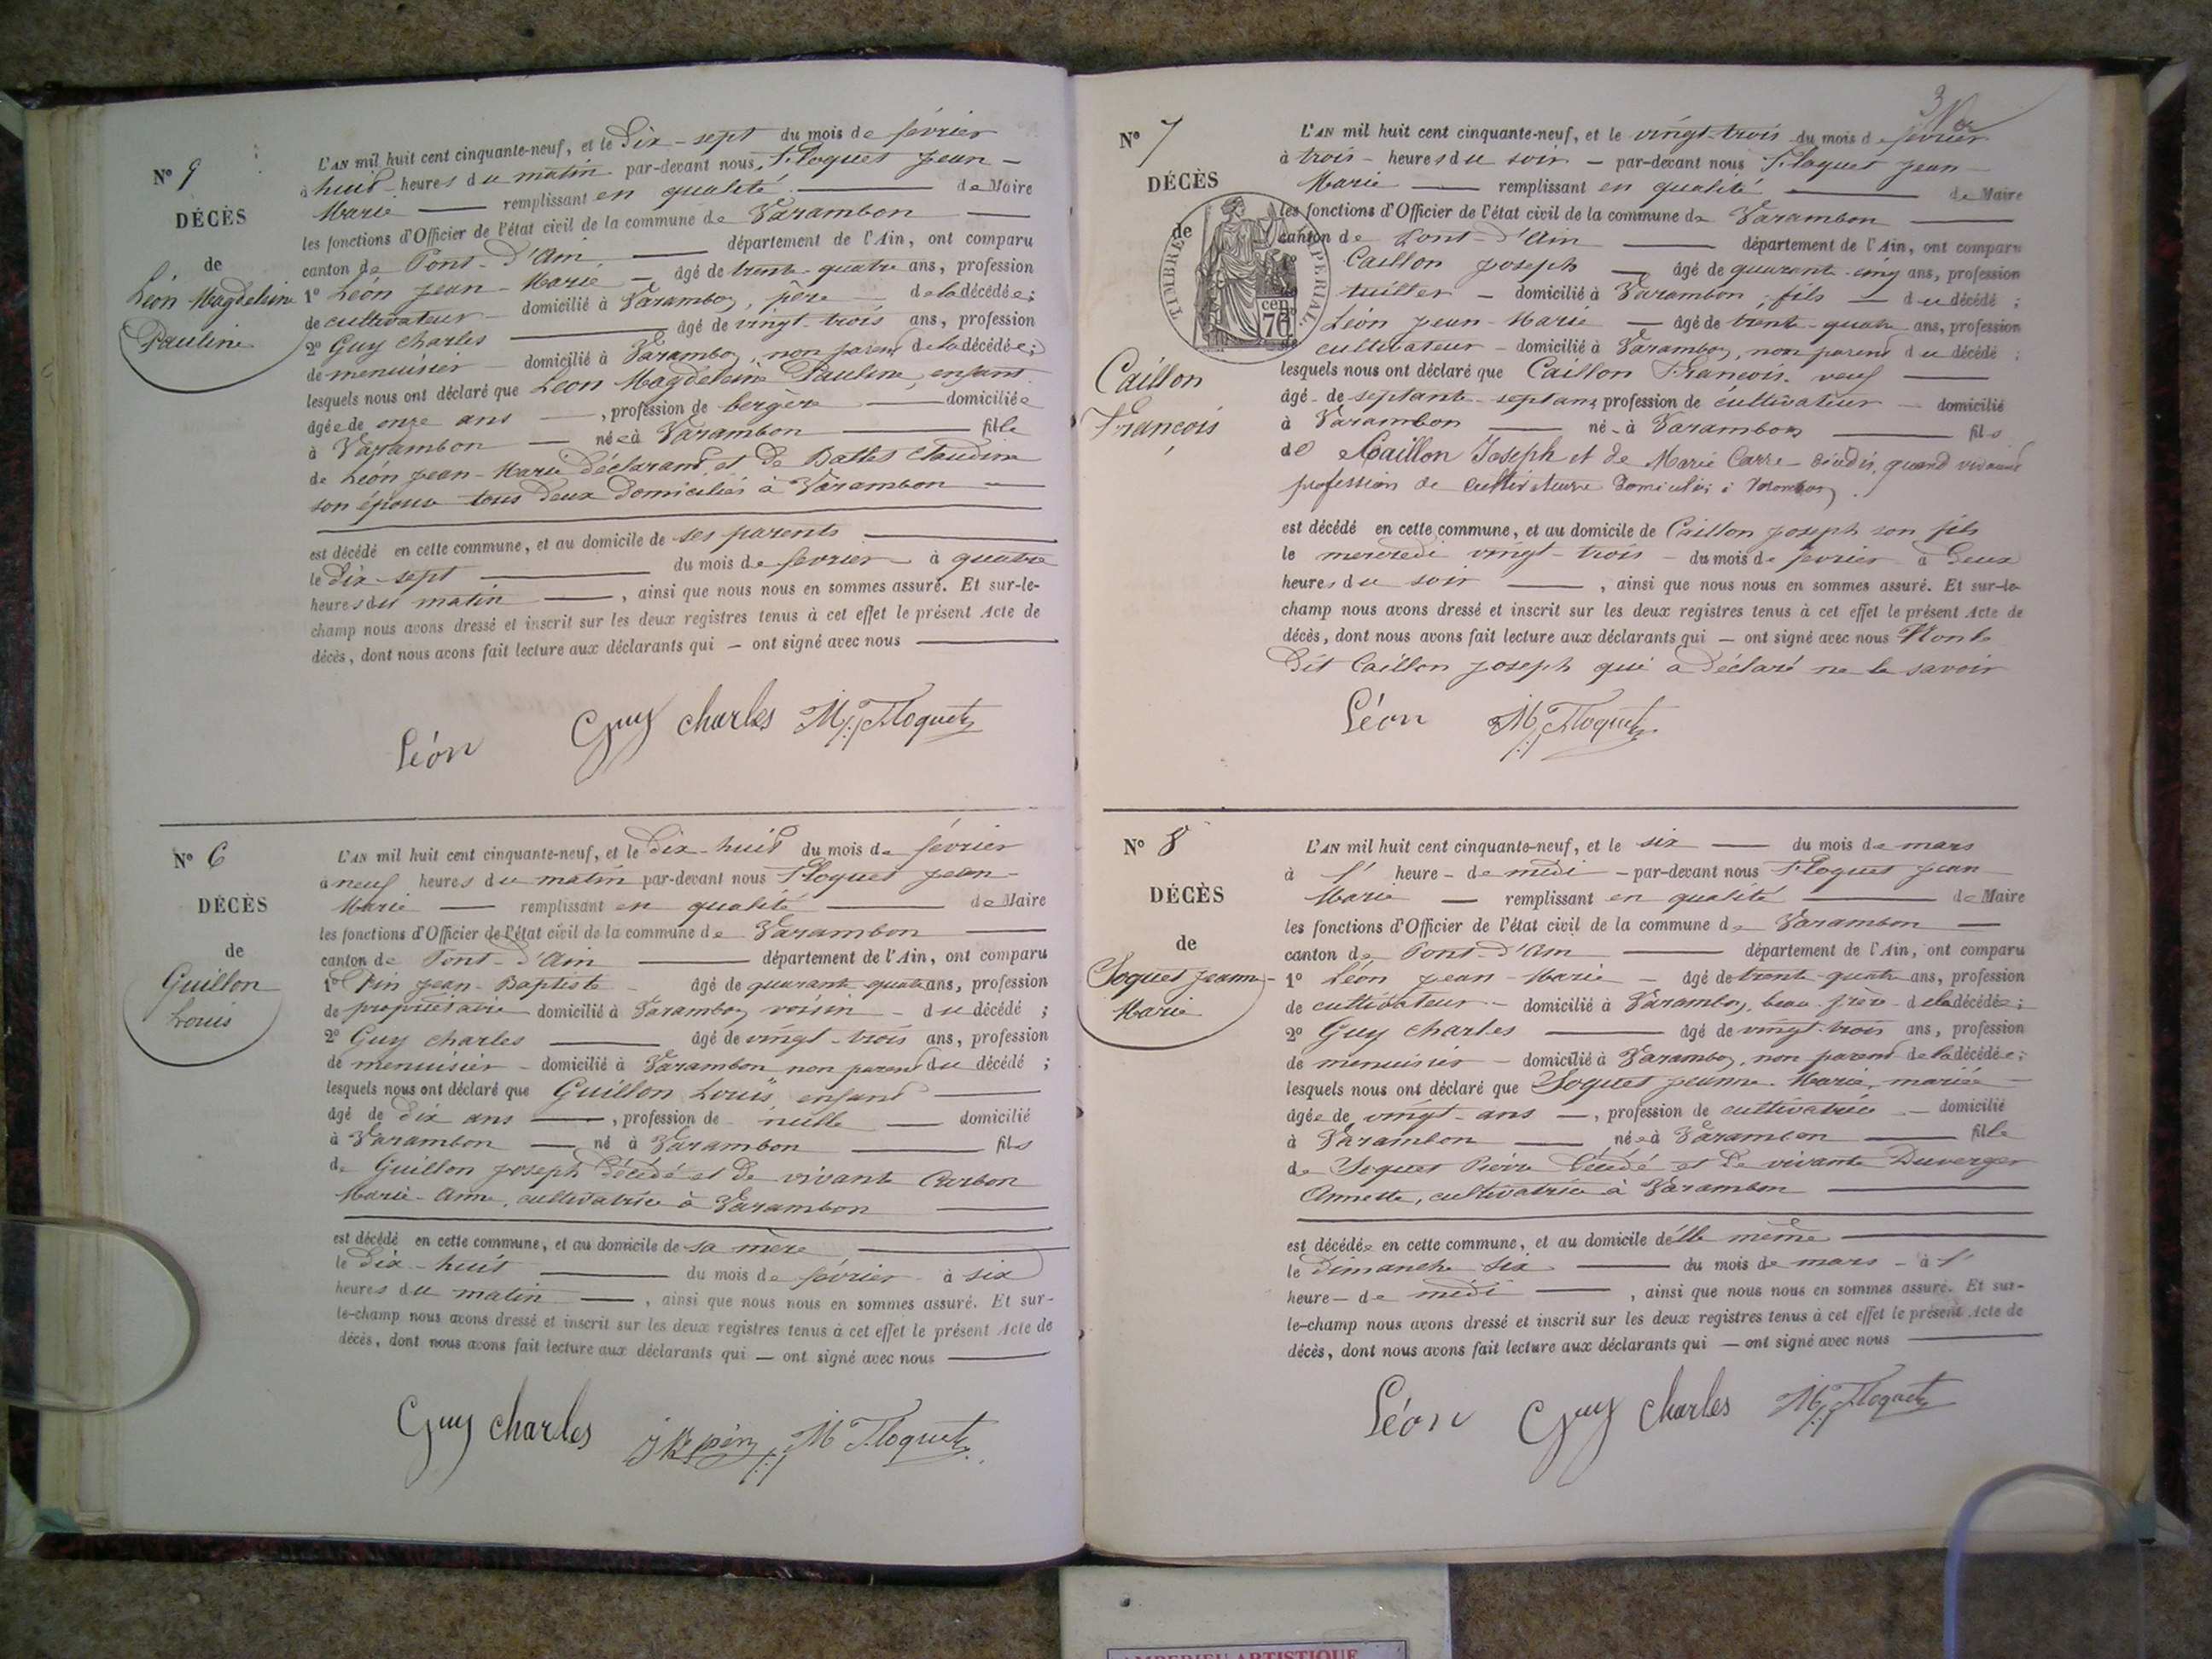 Nº 9
DÉCÈS
de
Léon Magdeleine
Pauline
L'AN mil huit cent cinquante-neuf, et le dix-sept du mois de février
à huit heures du matin par-devant nous Floquet Jean-
Marie remplissant en qualité de Maire
les fonctions d'Officier de l'état civil de la commune de Varambon
canton de Pont-d'Ain département de l'Ain, ont comparu
1º Léon Jean-Marie âgé de trente-quatre ans, profession
de cultivateur domicilié à Varambon, père de la décédée;
2º Guy Charles âgé de vingt-trois ans, profession
de menuisier domicilié à Varambon, non parent de la décédée;
lesquels nous ont déclaré que Léon Magdeleine Pauline, enfant
âgée de onze ans, profession de bergère domiciliée
à Varambon née à Varambon fille
de Léon Jean-Marie déclarant, et de Battet Claudine
son épouse tous deux domiciliés à Varambon
est décédé en cette commune, et au domicile de ses parents
le dix-sept du mois de février à quatre
heures du matin, ainsi que nous nous en sommes assuré. Et sur-le-
champ nous avons dressé et inscrit sur les deux registres tenus à cet effet le présent Acte de
décès, dont nous avons fait lecture aux déclarants qui — ont signé avec nous
Léon Guy charles M. Floquet
Nº 6
DÉCÈS
de
Guillon
Louis
L'AN mil huit cent cinquante-neuf, et le dix-huit du mois de février
à neuf heures du matin par-devant nous Floquet Jean-
Marie remplissant en qualité de Maire
les fonctions d'Officier de l'état civil de la commune de Varambon
canton de Pont-d'Ain département de l'Ain, ont comparu
1º Pin Jean-Baptiste âgé de quarante quatre ans, profession
de propriétaire domicilié à Varambon voisin du décédé;
2º Guy Charles âgé de vingt-trois ans, profession
de menuisier domicilié à Varambon non parent du décédé;
lesquels nous ont déclaré que Guillon Louis enfant
âgé de dix ans, profession de nulle domicilié
à Varambon né à Varambon fils
de Guillon Joseph décédé et de vivante Carbon
Marie-Anne, cultivatrice à Varambon
est décédé en cette commune, et au domicile de sa mère
le dix-huit du mois de février à six
heures du matin, ainsi que nous nous en sommes assuré. Et sur-
le-champ nous avons dressé et inscrit sur les deux registres tenus à cet effet le présent Acte de
décès, dont nous avons fait lecture aux déclarants qui — ont signé avec nous
Guy charles JB pin M Floquet
3
Nº 7
DÉCÈS
de
TIMBRE IMPÉRIAL
70 cen
Caillon
François
L'AN mil huit cent cinquante-neuf, et le vingt-trois du mois de février
à trois heures du soir par-devant nous Floquet Jean
Marie remplissant en qualité de Maire
les fonctions d'Officier de l'état civil de la commune de Varambon
canton de Pont-d'Ain département de l'Ain, ont comparu
Caillon Joseph âgé de quarante-cinq ans, profession
tuilier domicilié à Varambon, fils du décédé;
Léon Jean-Marie âgé de trente-quatre ans, profession
cultivateur domicilié à Varambon, non parent du décédé;
lesquels nous ont déclaré que Caillon François, veuf
âgé de septante-sept ans, profession de cultivateur domicilié
à Varambon né à Varambon fils
de Caillon Joseph et de Marie Carre quand vivaient
profession de cultivateurs domiciliés à Varambon.
est décédé en cette commune, et au domicile de Caillon Joseph son fils
le mercredi vingt-trois du mois de février à deux
heures du soir, ainsi que nous nous en sommes assuré. Et sur-le-
champ nous avons dressé et inscrit sur les deux registres tenus à cet effet le présent Acte de
décès, dont nous avons fait lecture aux déclarants qui — ont signé avec nous Non le
dit Caillon Joseph qui a déclaré ne le savoir
Léon M. Floquet
Nº 8
DÉCÈS
de
Joquet Jeanne-
Marie
L'AN mil huit cent cinquante-neuf, et le six du mois de mars
à l' heure de midi par-devant nous Floquet Jean
Marie remplissant en qualité de Maire
les fonctions d'Officier de l'état civil de la commune de Varambon
canton de Pont-d'Ain département de l'Ain, ont comparu
1º Léon Jean-Marie âgé de trente-quatre ans, profession
de cultivateur domicilié à Varambon, beau-frère de la décédée;
2º Guy Charles âgé de vingt-trois ans, profession
de menuisier domicilié à Varambon, non parent de la décédée;
lesquels nous ont déclaré que Joquet Jeanne-Marie, mariée
âgée de vingt ans, profession de cultivatrice domicilié
à Varambon née à Varambon fille
de Joquet Pierre décédé et de vivante Duverger
Annette, cultivatrice à Varambon
est décédée en cette commune, et au domicile d'elle même
le dimanche six du mois de mars à l'
heure de midi, ainsi que nous nous en sommes assuré. Et sur-
le-champ nous avons dressé et inscrit sur les deux registres tenus à cet effet le présent Acte de
décès, dont nous avons fait lecture aux déclarants qui — ont signé avec nous
Léon Guy charles M. Floquet
ARTISTIQUE